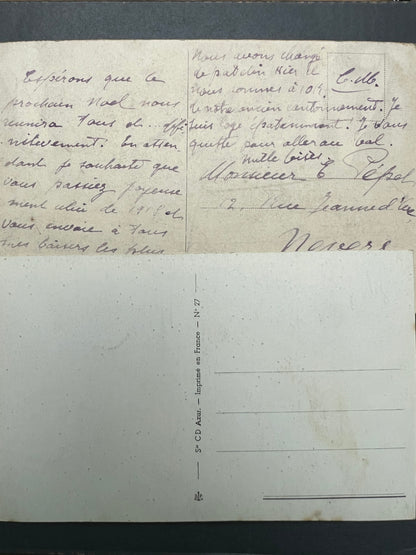 Espérons que le
prochain Noel nous
reunira tous et défi
nitivement. En atten
dant je souhaite que
vous passiez joyeuse
ment celui de 1918 et
vous envoie à tous
mes baisers les plus
Nous avons changé
de patelin hier et
nous sommes à 10 K.
de notre ancien cantonnement. Je
suis logé épatamment. Je vous
quitte pour aller au bal.
Mille bises.
C.M.
Monsieur E Pepot
12, Rue Jeanne d'Arc
Nevers
Sté CD Azur. — Imprimé en France — N° 27